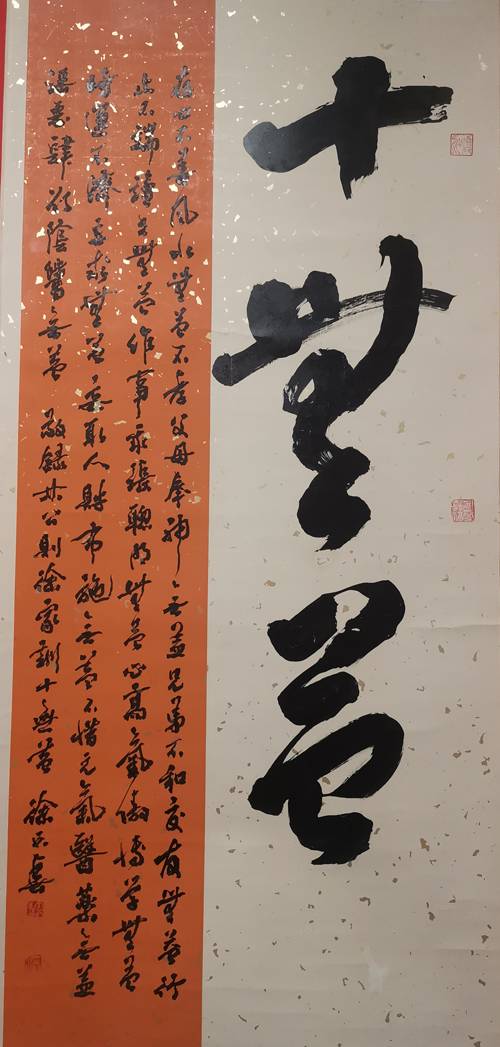 十無益
存心不善風水無益不孝父母奉神无益兄弟不和交友無益行
止不端讀書無益作事乖張聰明無益心高氣傲博學無益
時運不濟妄求無益妄取人財布施无益不惜元氣醫藥无益
淫惡肆欲陰騭无益 敬錄林公則徐家訓十無益 徐喜